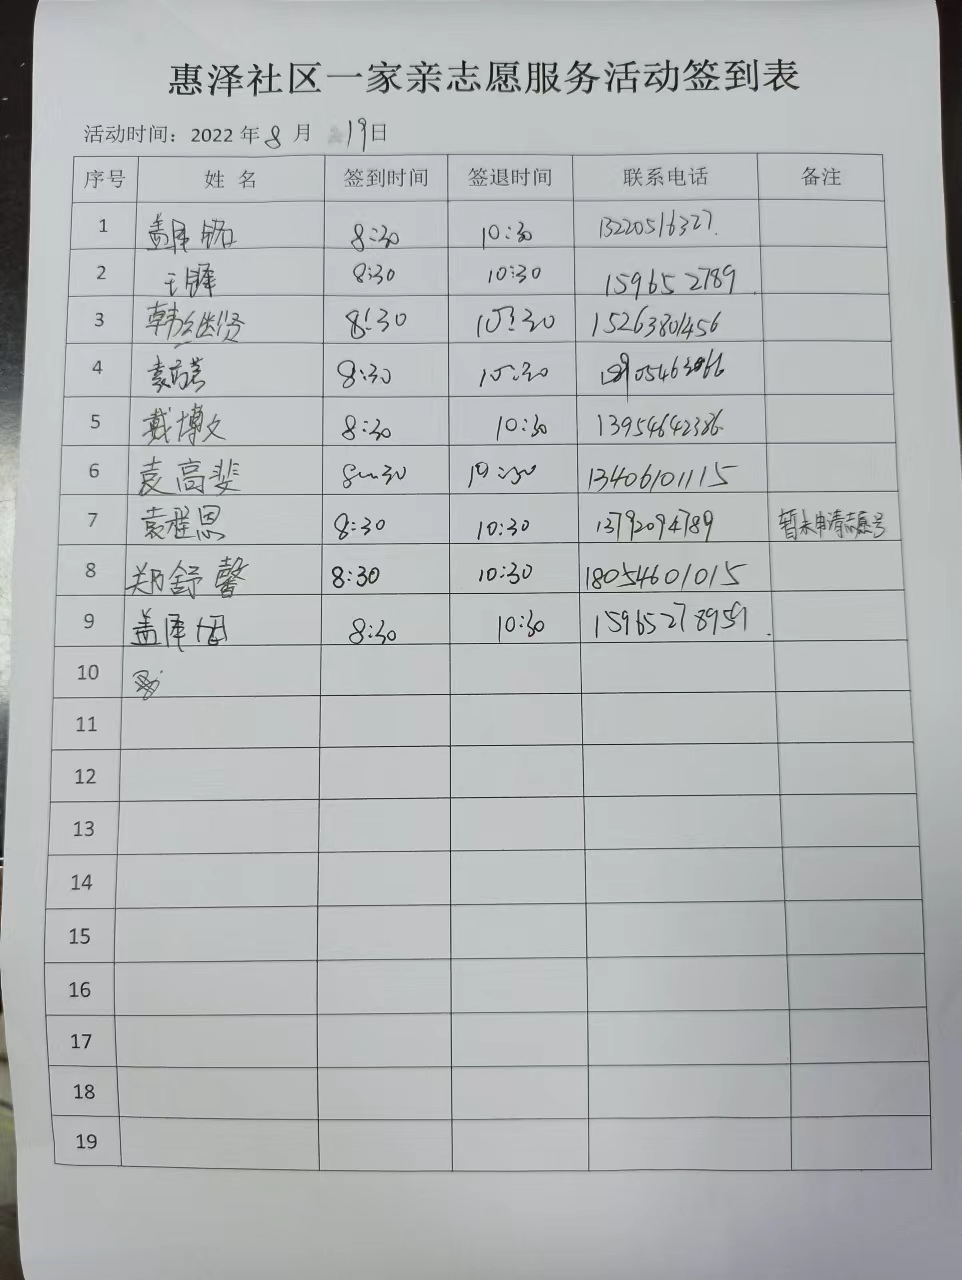 惠泽社区一家亲志愿服务活动签到表
活动时间：2022年8月19日
序号 姓 名 签到时间 签退时间 联系电话 备注
1 盖泽铭 8:30 10:30 13220516327.
2 王 8:30 10:30 1596527789
3 韩继贤 8:30 10:30 15263801456
4 袁 8:30 10:30
5 戴博文 8:30 10:30 13954642386
6 袁高斐 8:30 10:30 13406101115
7 袁程恩 8:30 10:30 13792094789 暂未申请志愿号
8 郑舒馨 8:30 10:30 18054601015
9 盖泽 8:30 10:30 15965278959.
10
11
12
13
14
15
16
17
18
19